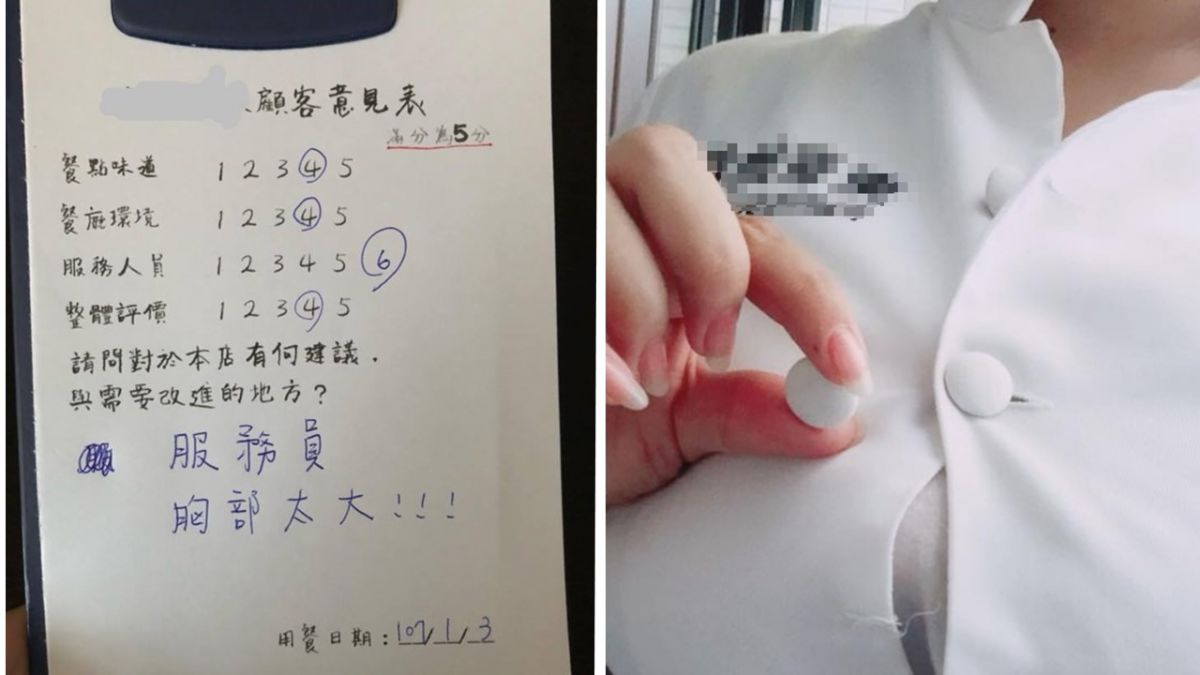 顧客意見表
滿分為5分
餐點味道 1 2 3 4 5
餐廳環境 1 2 3 4 5
服務人員 1 2 3 4 5 6
整體評價 1 2 3 4 5
請問對於本店有何建議.
與需要改進的地方?
服務員
胸部太大!!!
用餐日期:107/1/3